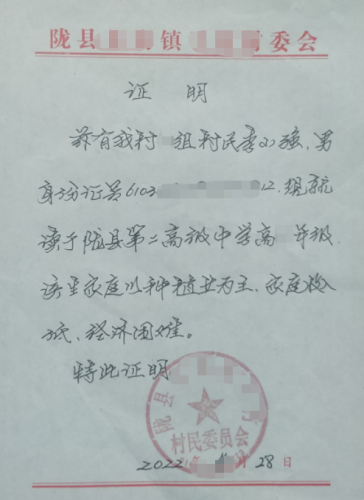 陇县 镇 委会
证 明
兹有我村 组村民李 强,男
身份证号6103 12.现就
读于陇县第二高级中学高 年级
该生家庭以种植业为主、家庭收
低、经济困难。
特此证明
陇县
村民委员会
2022年 月28日